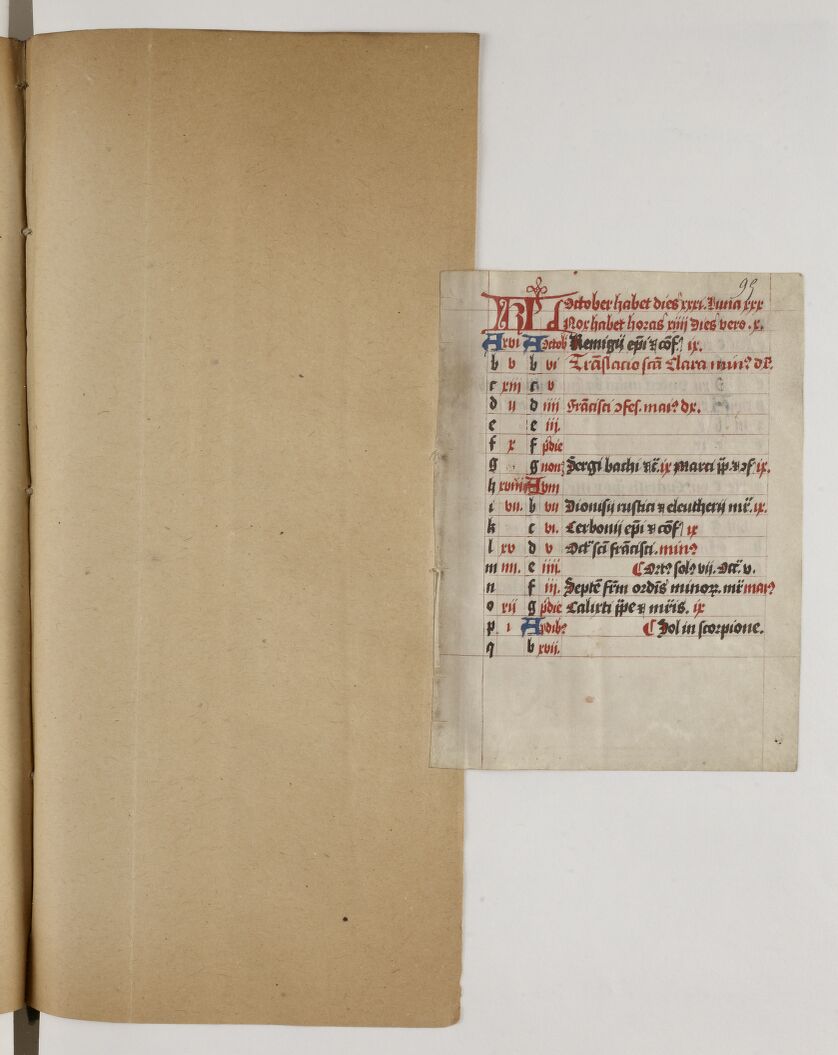 95
KL October habet dies xxxi. Luna xxx
Nox habet horas xiiij dies vero .x.
A xvi A Octob Remigij epi ⁊ cōf ix.
b v b vi Trāslacio scā Clara min⁹ dx.
c xiij c v
d ij d iiij Frācisci ɔfes. mai⁹ dx.
e e iij.
f x f pdie
g g non Sergi bachi ⁊c̄. ix marci pp̄ ⁊ ɔf ix.
h xviij A viij
i vij. b vij Dionisij rustici ⁊ eleutherij mr̄. ix.
k c vi. Cerbonij epi ⁊ cōf ix
l xv d v Oct̄ scī frācisci. min⁹
m iiij. e iiij. Ort⁹ sol⁹ vij. Occ̄. v.
n f iij. Septē frm ordis minoꝝ. mr̄ mai⁹
o xij g pdie Calixti pp̄e ⁊ mr̄is. ix
p i A ydib⁹ Sol in scorpione.
q b xvij.